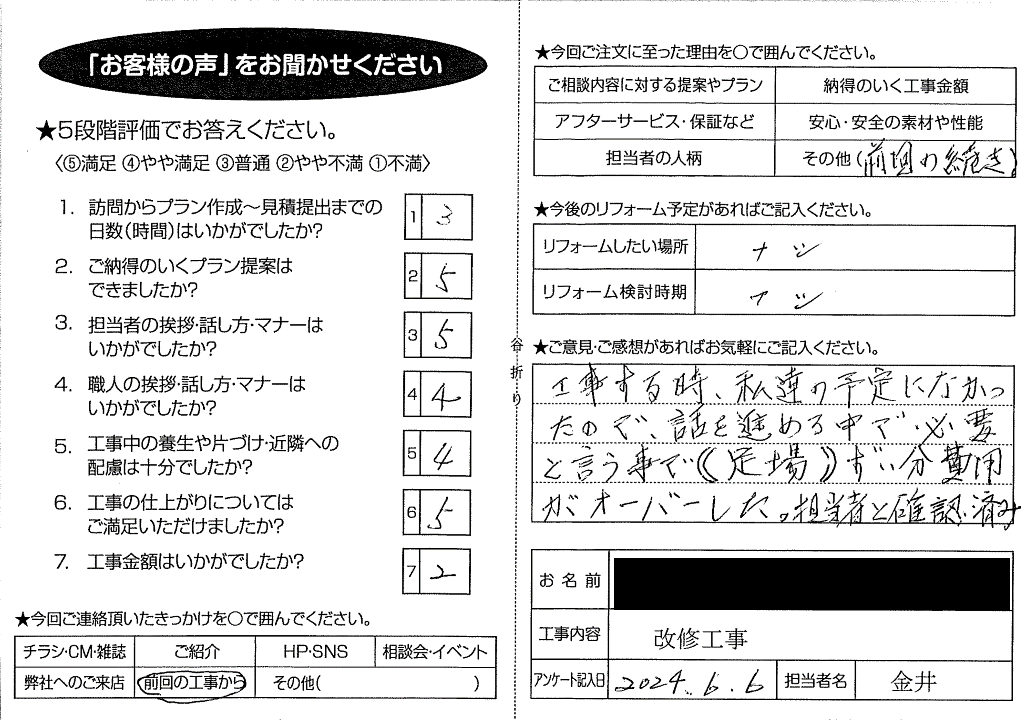 「お客様の声」をお聞かせください
★5段階評価でお答えください。
〈⑤満足 ④やや満足 ③普通 ②やや不満 ①不満〉
1. 訪問からプラン作成～見積提出までの
日数(時間)はいかがでしたか?
1 3
2. ご納得のいくプラン提案は
できましたか?
2 5
3. 担当者の挨拶・話し方・マナーは
いかがでしたか?
3 5
4. 職人の挨拶・話し方・マナーは
いかがでしたか?
4 4
5. 工事中の養生や片づけ・近隣への
配慮は十分でしたか?
5 4
6. 工事の仕上がりについては
ご満足いただけましたか?
6 5
7. 工事金額はいかがでしたか?
7 2
★今回ご連絡頂いたきっかけを○で囲んでください。
チラシ・CM・雑誌 ご紹介 HP・SNS 相談会・イベント
弊社へのご来店 前回の工事から その他( )
谷折り
★今回ご注文に至った理由を○で囲んでください。
ご相談内容に対する提案やプラン 納得のいく工事金額
アフターサービス・保証など 安心・安全の素材や性能
担当者の人柄 その他(前回の継続)
★今後のリフォーム予定があればご記入ください。
リフォームしたい場所 ナシ
リフォーム検討時期 ナシ
★ご意見・ご感想があればお気軽にご記入ください。
工事する時、私達の予定になかっ
たので、話を進める中で必要
と言う事で《足場》ずい分費用
がオーバーした。担当者と確認済み
お名前
工事内容 改修工事
アンケート記入日 2024.6.6 担当者名 金井